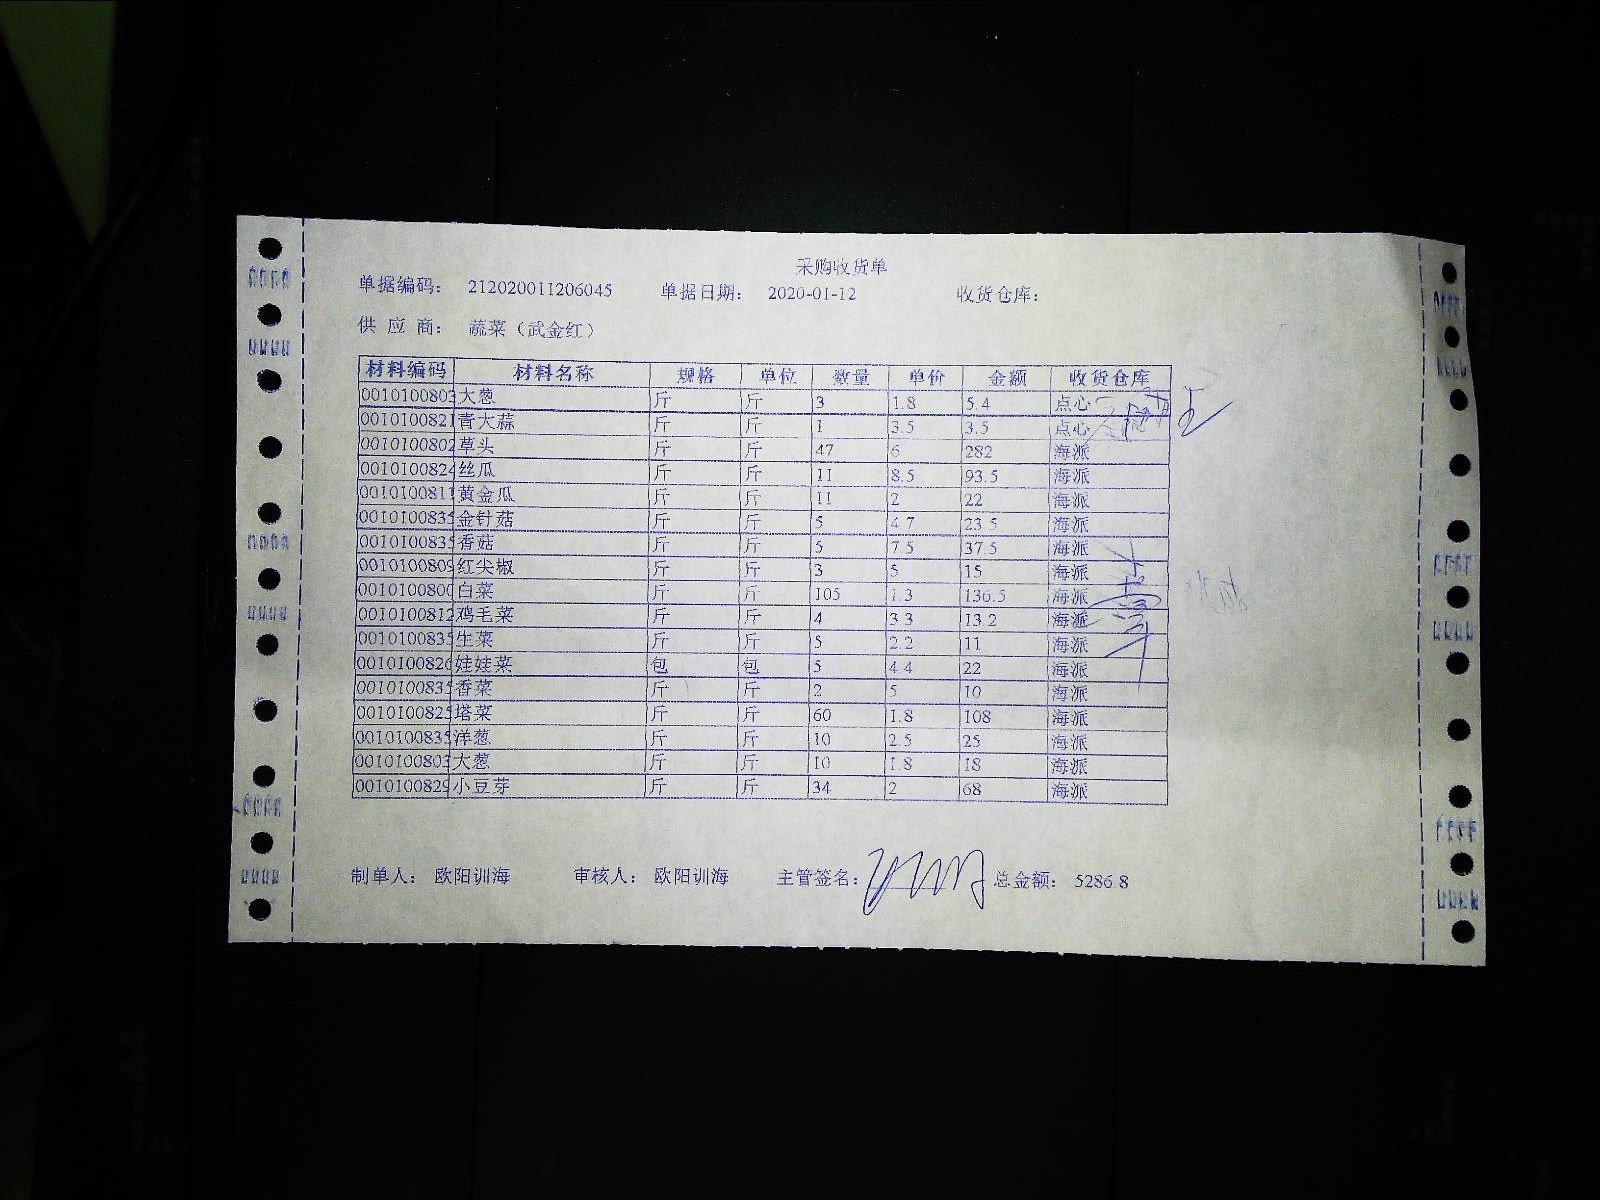 采购收货单
单据编码： 212020011206045 单据日期： 2020-01-12 收货仓库：
供 应 商： 蔬菜（武金红）
材料编码 材料名称 规格 单位 数量 单价 金额 收货仓库
0010100803 大葱 斤 斤 3 1.8 5.4 点心
0010100821 青大蒜 斤 斤 1 3.5 3.5 点心
0010100802 草头 斤 斤 47 6 282 海派
0010100824 丝瓜 斤 斤 11 8.5 93.5 海派
0010100811 黄金瓜 斤 斤 11 2 22 海派
0010100835 金针菇 斤 斤 5 4.7 23.5 海派
0010100835 香菇 斤 斤 5 7.5 37.5 海派
0010100809 红尖椒 斤 斤 3 5 15 海派
0010100800 白菜 斤 斤 105 1.3 136.5 海派
0010100812 鸡毛菜 斤 斤 4 3.3 13.2 海派
0010100835 生菜 斤 斤 5 2.2 11 海派
0010100826 娃娃菜 包 包 5 4.4 22 海派
0010100835 香菜 斤 斤 2 5 10 海派
0010100825 塔菜 斤 斤 60 1.8 108 海派
0010100835 洋葱 斤 斤 10 2.5 25 海派
0010100803 大葱 斤 斤 10 1.8 18 海派
0010100829 小豆芽 斤 斤 34 2 68 海派
制单人： 欧阳训海 审核人： 欧阳训海 主管签名： 总金额： 5286.8